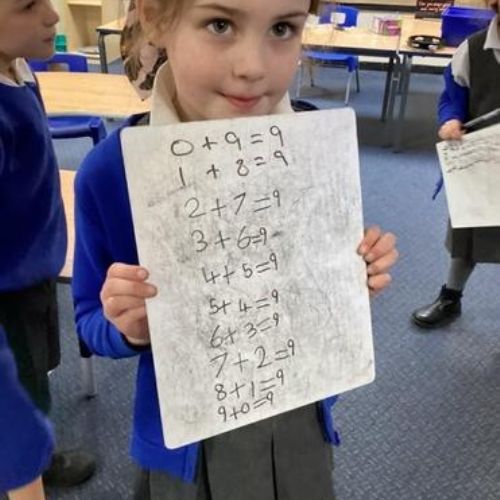 0 + 9 = 9
1 + 8 = 9
2 + 7 = 9
3 + 6 = 9
4 + 5 = 9
5 + 4 = 9
6 + 3 = 9
7 + 2 = 9
8 + 1 = 9
9 + 0 = 9